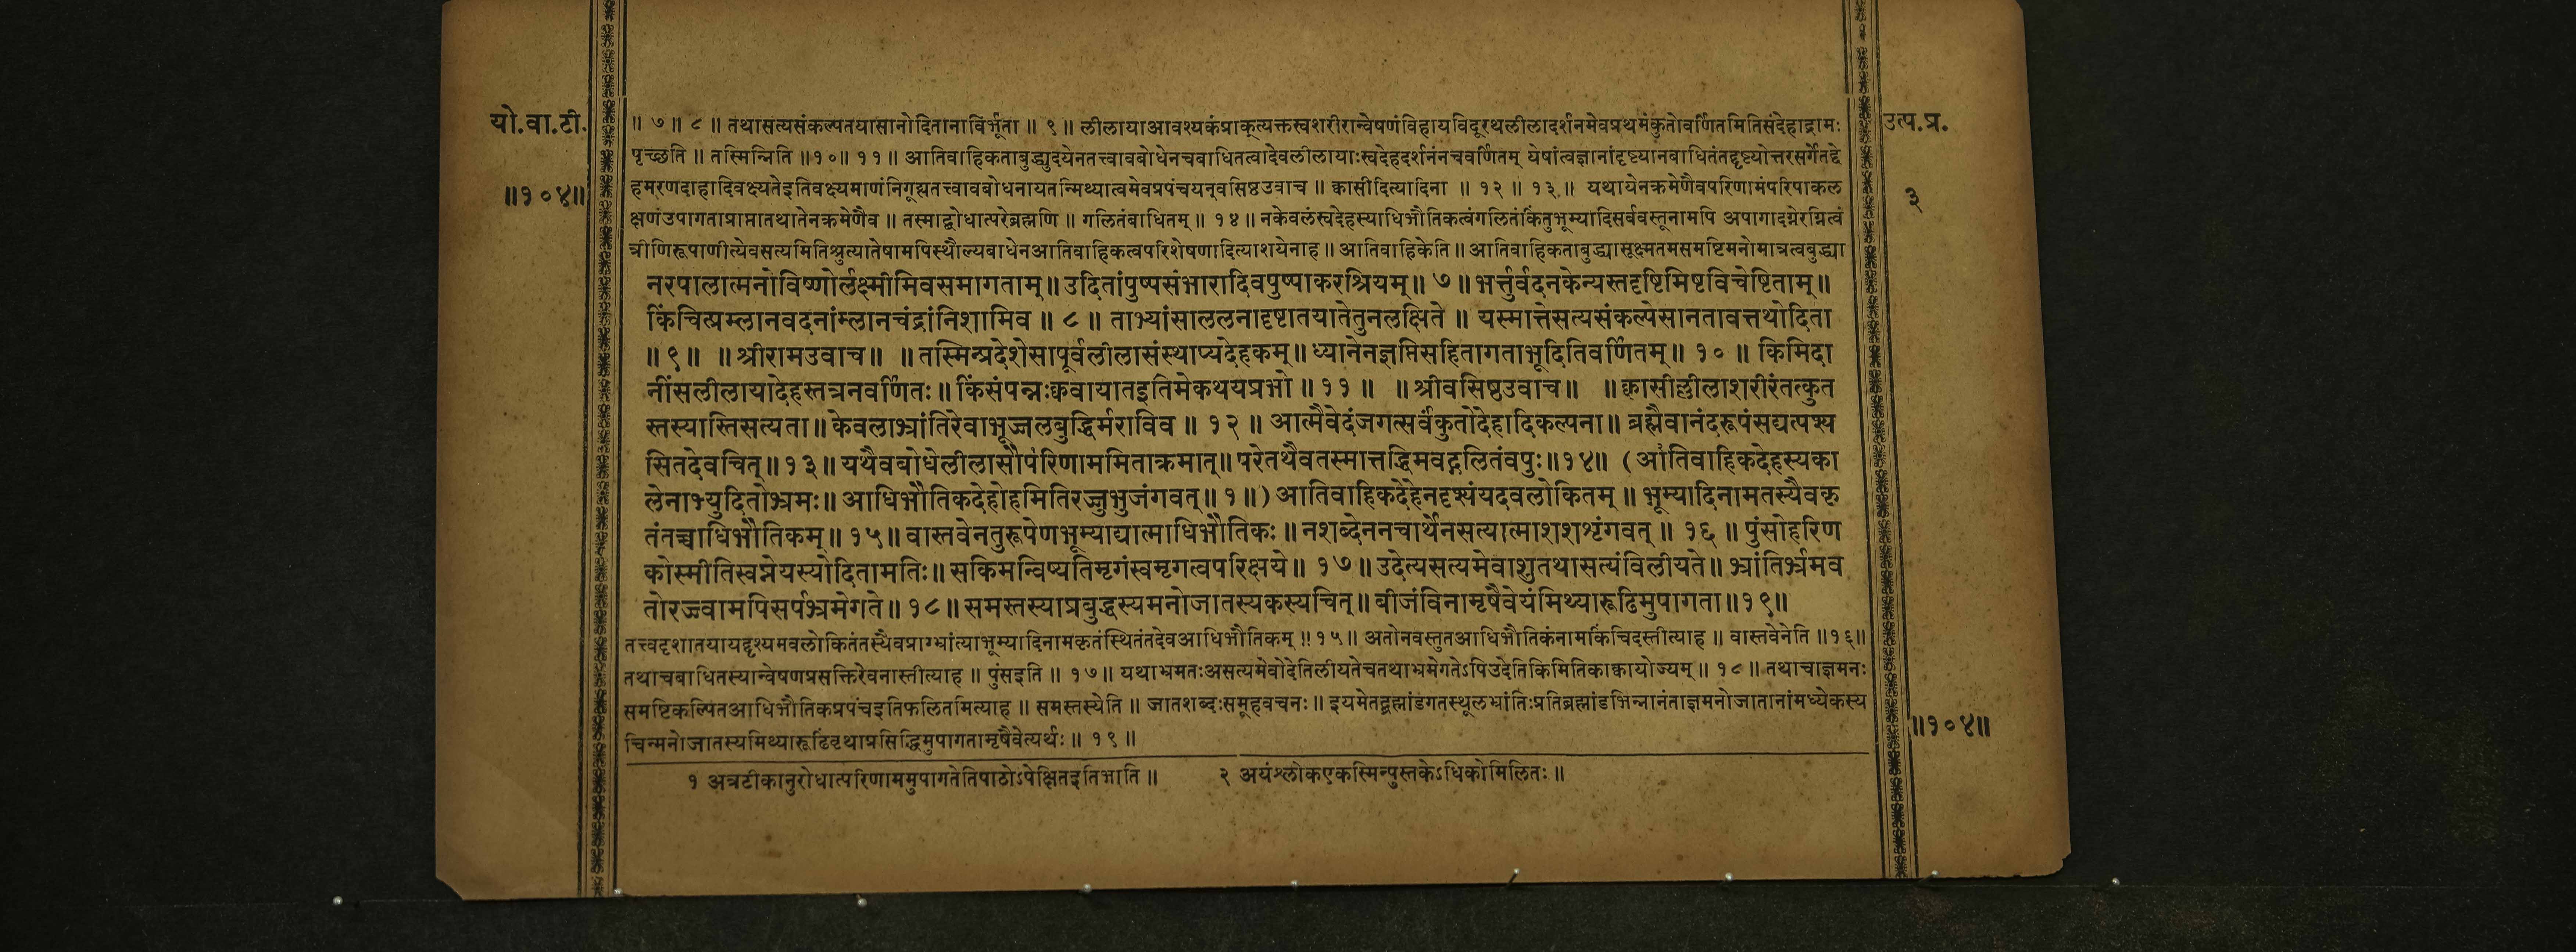 यो.वा.टी.
॥१०४॥
॥ ७ ॥ ८ ॥ तथासत्यसंकल्पतयासानोदितानाविर्भूता ॥ ९ ॥ लीलायाआवश्यकंप्राक्त्यक्तस्वशरीरान्वेषणंविहायविदूरथलीलादर्शनमेवप्रथमंकुतोवर्णितमितिसंदेहाद्रामः
पृच्छति ॥ तस्मिन्निति ॥१०॥ ११ ॥ आतिवाहिकताबुद्ध्युदयेनतत्त्वावबोधेनचबाधितत्वादेवलीलायाःस्वदेहदर्शनंनचवर्णितम् येषांत्वज्ञानांदृष्ट्यानबाधितंतद्दृष्ट्योत्तरसर्गेतद्दे
हमरणदाहादिवक्ष्यतेइतिवक्ष्यमाणंनिगूह्यतत्त्वावबोधनायतन्मिथ्यात्वमेवप्रपंचयन्वसिष्ठउवाच ॥ क्वासीदित्यादिना ॥ १२ ॥ १३ ॥ यथायेनक्रमेणैवपरिणामंपरिपाकल
क्षणंउपागताप्राप्तातथातेनक्रमेणैव ॥ तस्माद्बोधात्परेब्रह्मणि ॥ गलितंबाधितम् ॥ १४ ॥ नकेवलंस्वदेहस्याधिभौतिकत्वंगलितंकिंतुभूम्यादिसर्ववस्तूनामपि अपागादग्नेरग्नित्वं
त्रीणिरूपाणीत्येवसत्यमितिश्रुत्यातेषामपिस्थौल्यबाधेनआतिवाहिकत्वपरिशेषणादित्याशयेनाह ॥ आतिवाहिकेति ॥ आतिवाहिकताबुद्ध्यासूक्ष्मतमसमष्टिमनोमात्रत्वबुद्ध्या
नरपालात्मनोविष्णोर्लक्ष्मीमिवसमागताम् ॥ उदितांपुष्पसंभारादिवपुष्पाकरश्रियम् ॥ ७ ॥ भर्त्तुर्वदनकेन्यस्तदृष्टिमिष्टविचेष्टिताम् ॥
किंचित्प्रम्लानवदनांम्लानचंद्रांनिशामिव ॥ ८ ॥ ताभ्यांसाललनादृष्टातयातेतुनलक्षिते ॥ यस्मात्तेसत्यसंकल्पेसानतावत्तथोदिता
॥ ९ ॥ ॥ श्रीरामउवाच ॥ ॥ तस्मिन्प्रदेशेसापूर्वलीलासंस्थाप्यदेहकम् ॥ ध्यानेनज्ञप्तिसहितागताभूदितिवर्णितम् ॥ १० ॥ किमिदा
नींसलीलायादेहस्तत्रनवर्णितः ॥ किंसंपन्नःक्ववायातइतिमेकथयप्रभो ॥ ११ ॥ ॥ श्रीवसिष्ठउवाच ॥ ॥ क्वासील्लीलाशरीरंतत्कुत
स्तस्यास्तिसत्यता ॥ केवलाभ्रांतिरेवाभूज्जलबुद्धिर्मराविव ॥ १२ ॥ आत्मैवेदंजगत्सर्वंकुतोदेहादिकल्पना ॥ ब्रह्मैवानंदरूपंसद्यत्पश्य
सितदेवचित् ॥ १३ ॥ यथैवबोधेलीलासौपरिणाममिताक्रमात् ॥ परेतथैवतस्मात्तद्धिमवद्गलितंवपुः ॥ १४ ॥ (आतिवाहिकदेहस्यका
लेनाभ्युदितोभ्रमः ॥ आधिभौतिकदेहोहमितिरज्जुभुजंगवत् ॥ १ ॥) आतिवाहिकदेहेनदृश्यंयदवलोकितम् ॥ भूम्यादिनामतस्यैवकृ
तंतच्चाधिभौतिकम् ॥ १५ ॥ वास्तवेनतुरूपेणभूम्याद्यात्माधिभौतिकः ॥ नशब्देननचार्थेनसत्यात्माशशशृंगवत् ॥ १६ ॥ पुंसोहरिण
कोस्मीतिस्वप्नेयस्योदितामतिः ॥ सकिमन्विष्यतिमृगंस्वमृगत्वपरिक्षये ॥ १७ ॥ उदेत्यसत्यमेवाशुतथासत्यंविलीयते ॥ भ्रांतिर्भ्रमव
तोरज्ज्वामपिसर्पभ्रमेगते ॥ १८ ॥ समस्तस्याप्रबुद्धस्यमनोजातस्यकस्यचित् ॥ बीजंविनामृषैवेयंमिथ्यारूढिमुपागता ॥ १९ ॥
तत्त्वदृशातयायद्दृश्यमवलोकितंतस्यैवप्राग्भ्रांत्याभूम्यादिनामकृतंस्थितंतदेवआधिभौतिकम् ॥ १५ ॥ अतोनवस्तुतआधिभौतिकंनामकिंचिदस्तीत्याह ॥ वास्तवेनेति ॥१६॥
तथाचबाधितस्यान्वेषणप्रसक्तिरेवनास्तीत्याह ॥ पुंसइति ॥ १७ ॥ यथाभ्रमतःअसत्यमेवोदेतिलीयतेचतथाभ्रमेगतेऽपिउदेतिकिमितिकाक्वायोज्यम् ॥ १८ ॥ तथाचाज्ञमनः
समष्टिकल्पितआधिभौतिकप्रपंचइतिफलितमित्याह ॥ समस्तस्येति ॥ जातशब्दःसमूहवचनः ॥ इयमेतद्ब्रह्मांडगतस्थूलभ्रांतिःप्रतिब्रह्मांडभिन्नानंताज्ञमनोजातानांमध्येकस्य
चिन्मनोजातस्यमिथ्यारूढिंवृथाप्रसिद्धिमुपागतामृषैवेत्यर्थः ॥ १९ ॥
१ अत्रटीकानुरोधात्परिणाममुपागतेतिपाठोऽपेक्षितइतिभाति ॥ २ अयंश्लोकएकस्मिन्पुस्तकेऽधिकोमिलितः ॥
उत्प.प्र.
३
॥१०४॥